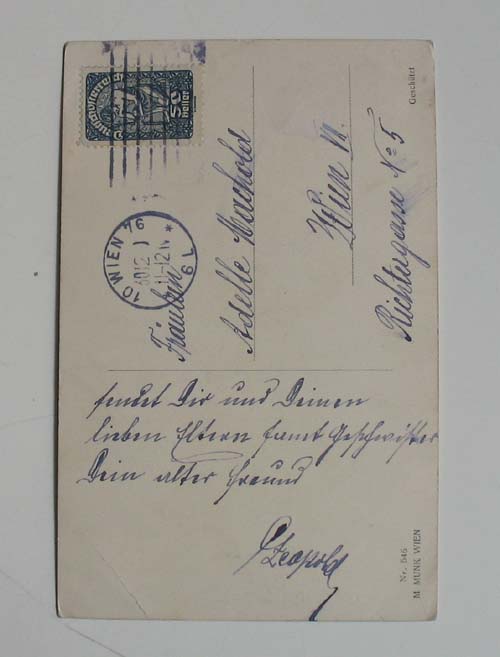 Deutschösterreich
50
Heller
10 WIEN 76
11-12
Fräulein
Adelle Machold
Wien
Richtergasse No 5
Geschützt
sendet Dir und Deinen
lieben Eltern samt Geschwister
Dein alter Freund
Leopold
Nr. 646
M. MUNK WIEN